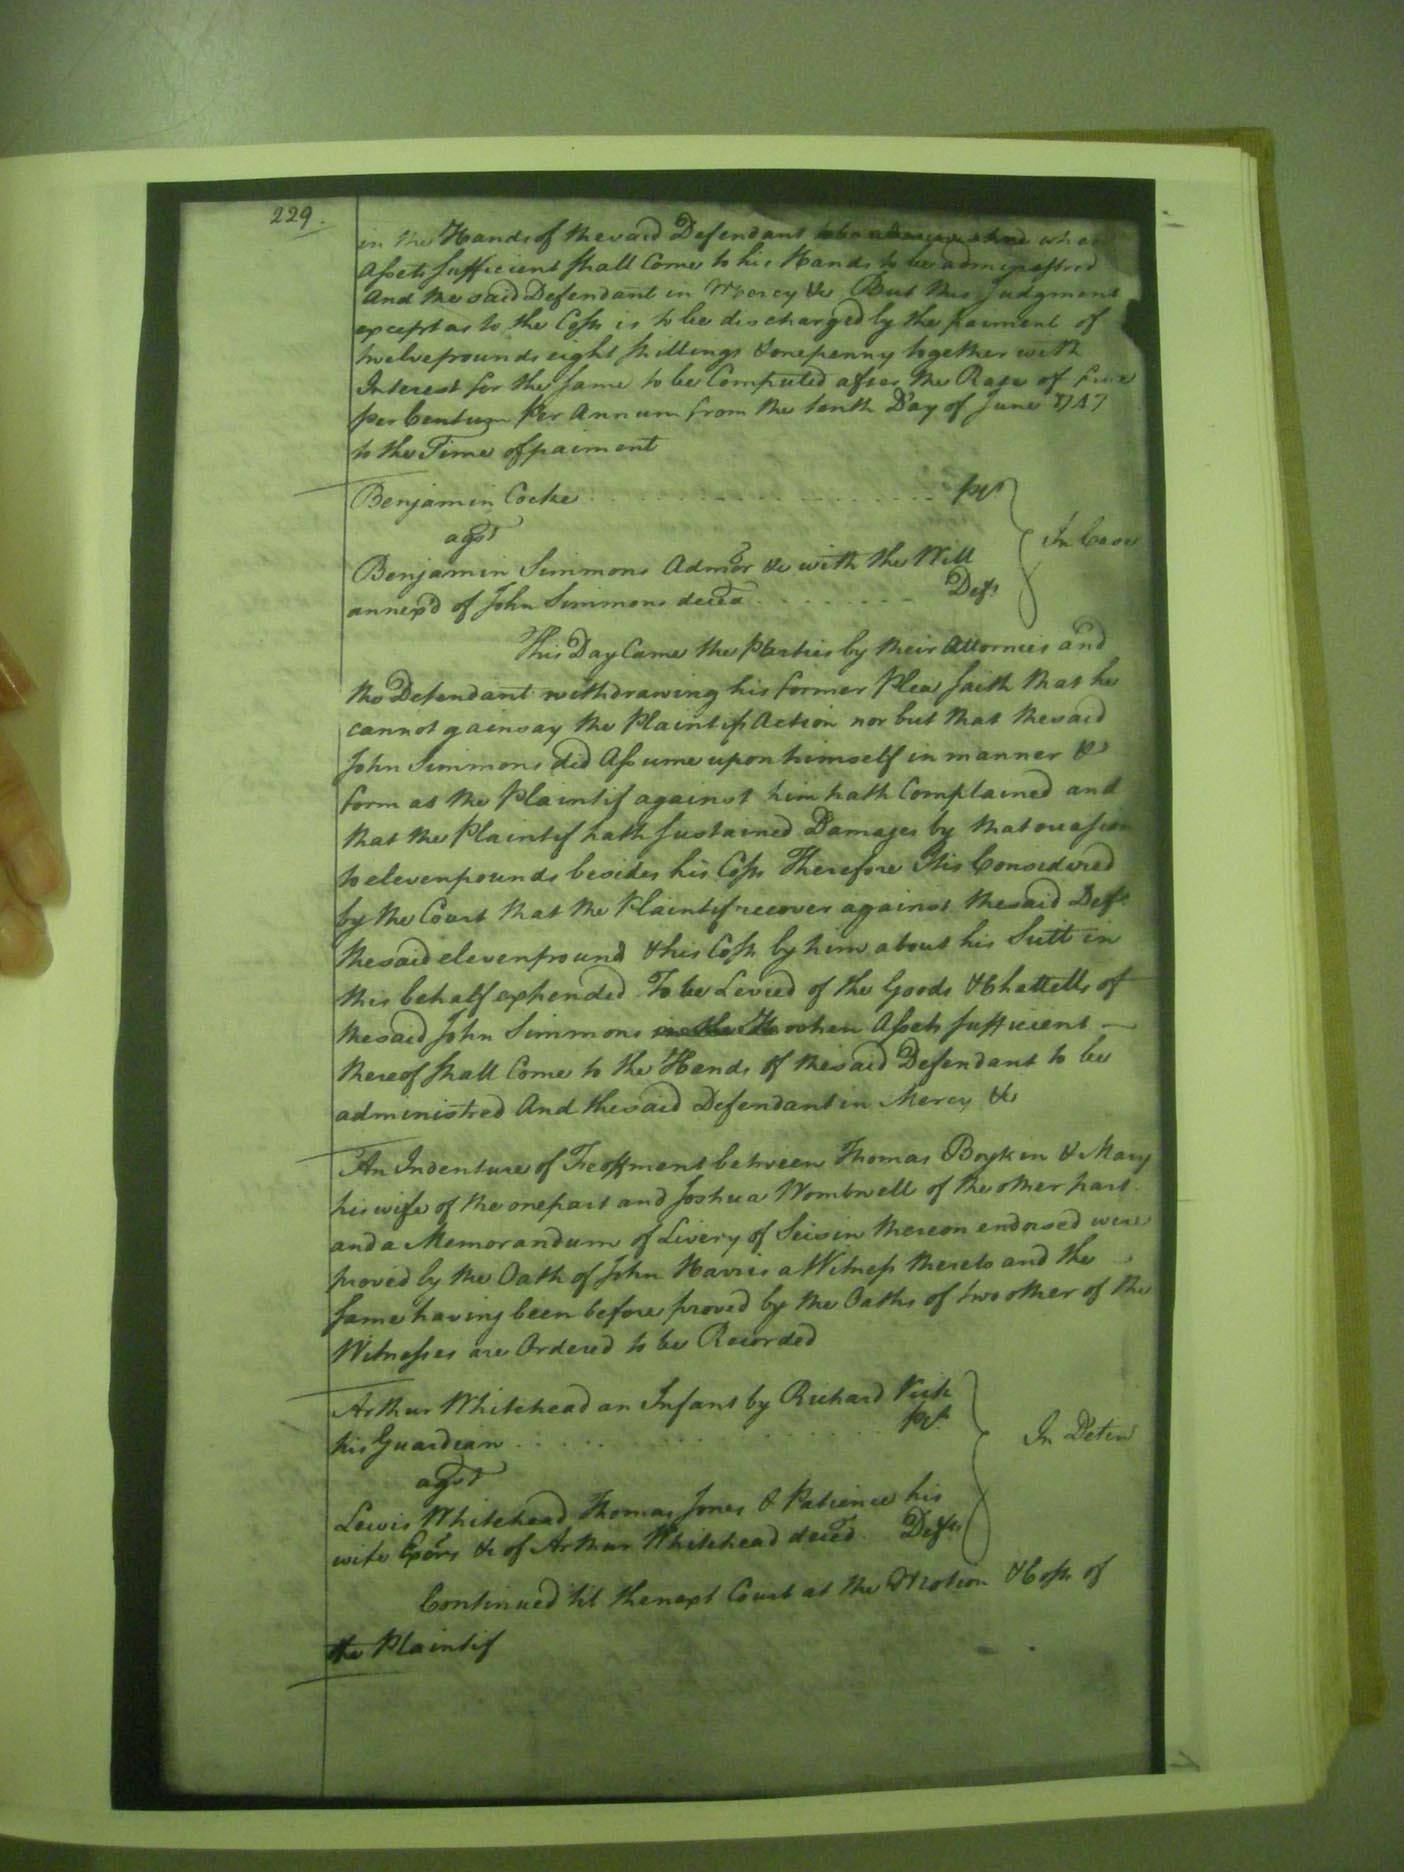 229.
in the Hands of the said Defendant when
Assets sufficient shall Come to his Hands to be administred
And the said Defendant in Mercy &c But this Judgment
except as to the Costs is to be discharged by the paiment of
twelve pounds eight shillings & one penny together with
Interest for the same to be Computed after the Rate of five
per Centum Per Annum from the tenth Day of June 1747
to the Time of paiment
Benjamin Cocke . . . . . . . . . . Plt
agst
In Case
Benjamin Simmons Admor &c with the Will
annexd of John Simmons deced . . . . . . Deft
This Day Came the Parties by their Attornies and
the Defendant withdrawing his former Plea saith that he
cannot gainsay the Plaintifs Action nor but that the said
John Simmons did Assume upon himself in manner &
form as the Plaintif against him hath Complained and
that the Plaintif hath sustained Damages by that occasion
to eleven pounds besides his Costs Therefore Itis Considered
by the Court that the Plaintif recover against the said Deft
the said eleven pound & his Costs by him about his Suit in
this behalf expended To be Levied of the Goods & Chattells of
the said John Simmons in the H when Assets sufficient
thereof shall Come to the Hands of the said Defendant to be
administred And the said Defendant in Mercy &c
An Indenture of Feoffment between Thomas Boykin & Mary
his wife of the one part and Joshua Wombwell of the other part
and a Memorandum of Livery of Seisin thereon endorsed were
proved by the Oath of John Harris a Witness thereto and the
same having been before proved by the Oaths of two other of the
Witnesses are Ordered to be Recorded
Arthur Whitehead an Infant by Richard Vick
his Guardian . . . . . . . . . . Plt
In Detin
agst
Lewis Whitehead Thomas Jones & Patience his
wife Exors &c of Arthur Whitehead decd Defts
Continued 'til the next Court at the Motion & Costs of
the Plaintif